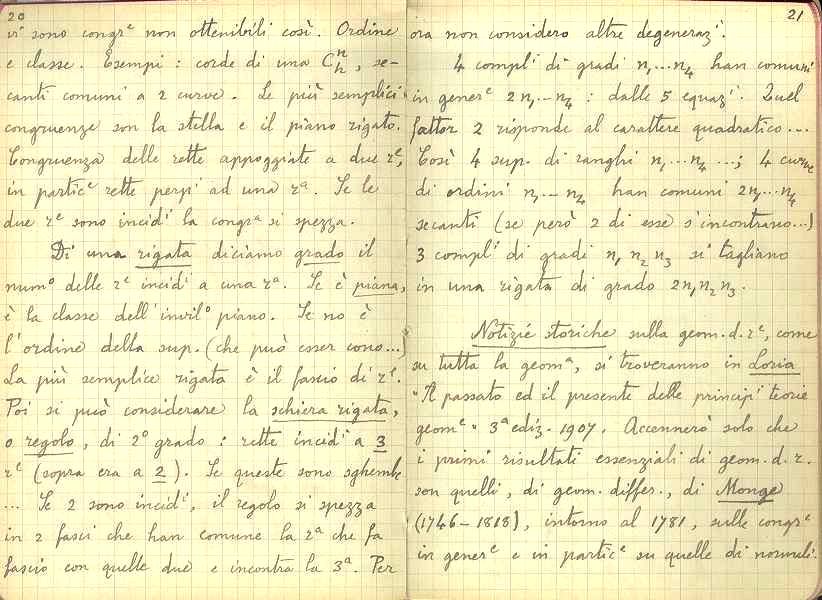 20
vi sono congrᵉ non ottenibili così. Ordine
e classe. Esempi: corde di una Cⁿₕ, se-
canti comuni a 2 curve. Le più semplici
congruenze son la stella e il piano rigato.
Congruenza delle rette appoggiate a due rᵉ,
in particᵉ rette perpⁱ ad una rᵃ. Se le
due rᵉ sono incidⁱ la congrᵃ si spezza.
Di una rigata diciamo grado il
numº delle rᵉ incidⁱ a una rᵃ. Se è piana,
è la classe dell'invilº piano. Se no è
l'ordine della sup. (che può esser cono...)
La più semplice rigata è il fascio di rᵉ.
Poi si può considerare la schiera rigata,
o regolo, di 2º grado: rette incidⁱ a 3
rᵉ (sopra era a 2). Se queste sono sghembe
... Se 2 sono incidⁱ, il regolo si spezza
in 2 fasci che han comune la rᵃ che fa
fascio con quelle due e incontra la 3ᵃ. Per
21
ora non considero altre degenerazⁱ.
4 complⁱ di gradi n₁...n₄ han comuni
in generᵉ 2n₁...n₄: dalle 5 equazⁱ. Quel
fattor 2 risponde al carattere quadratico...
Così 4 sup. di ranghi n₁...n₄ ...; 4 curve
di ordini n₁...n₄ han comuni 2n₁...n₄
secanti (se però 2 di esse s'incontrano...)
3 complⁱ di gradi n₁ n₂ n₃ si tagliano
in una rigata di grado 2n₁n₂n₃.
Notizie storiche sulla geom. d. rᵉ, come
su tutta la geomᵃ, si troveranno in Loria
"Il passato ed il presente delle principⁱ teorie
geomᵉ" 3ᵃ ediz. 1907. Accennerò solo che
i primi risultati essenziali di geom. d. r.
son quelli, di geom. differ., di Monge
(1746-1818), intorno al 1781, sulle congrᵉ
in generᵉ e in particᵉ su quelle di normali.